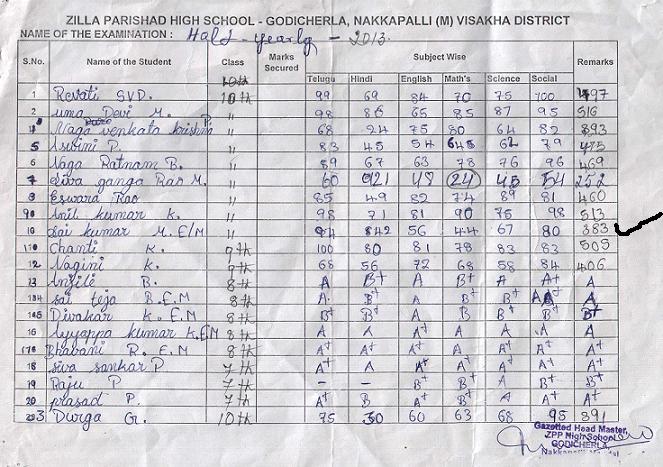 ZILLA PARISHAD HIGH SCHOOL - GODICHERLA, NAKKAPALLI (M) VISAKHA DISTRICT
NAME OF THE EXAMINATION : Half - yearly - 2013.
S.No. Name of the Student Class Marks Secured Subject Wise Remarks
Telugu Hindi English Math's Science Social
1 Revati S.V.D. 10th 99 69 84 70 75 100 497
2 Uma Devi M. " 98 86 65 85 87 95 516
Naga venkata krishna P. " 68 24 75 80 64 82 393
5 Asvini P. " 83 45 54 62 79
6 Naga Ratnam B. " 89 67 63 78 76 96 469
7 Siva ganga Rao M. " 60 48 24 45 54 252
8 Eswara Rao " 85 49 82 74 89 81 460
9 Anil kumar K. " 98 71 81 90 75 98 513
10 Sai kumar M. E/M " 94 56 44 67 80 383
11 Chanti K. 9th 100 80 81 78 83 83 505
12 Nagini K. 9th 68 56 72 68 58 84 406
13 Anjili B. 8th A B+ A B+ A A+ A
14 Sai teja B. E.M 8th A B+ A B+ B+ A A
15 Divakar K. E.M 8th B+ B+ A B+ B+ B+
16 Ayyappa kumar K. E.M 8th A A A+ A A A A
17 Bhavani R. E.M 8th A+ A+ A+ A+ A+ A+ A+
18 Siva sankar P 7th A+ A A+ A+ A+ A+ A+
19 Raju P 7th - - B+ B+ A B+ B+
20 prasad P. 7th A B A A A+ A+
Durga G. 10th 75 30 60 63 68 95 391
Gazetted Head Master,
ZPP High School
GODICHERLA,
Nakkapalli Mandal